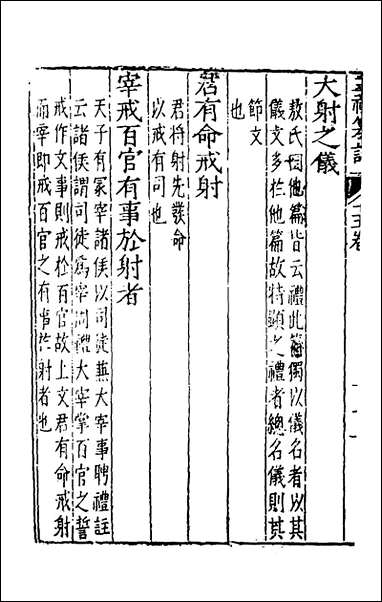 禮纂註 十五卷
大射之儀
敖氏曰他篇皆云禮此篇獨以儀名者以其
儀文多於他篇故特顯之禮者總名儀則其
節文
也
君有命戒射
君將射先發命
以戒有司也
宰戒百官有事於射者
天子有冢宰諸侯以司徒兼大宰事聘禮註
云諸侯謂司徒為宰周禮大宰掌百官之誓
戒作文事則戒於百官故上文君有命戒射
而宰即戒百官之有事於射者也